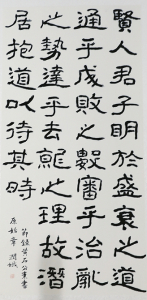 賢人君子明於盛衰之道
通乎成敗之數審乎治亂
之勢達乎去就之理故潛
居抱道以待其時
節錄黃石公素書
原始章